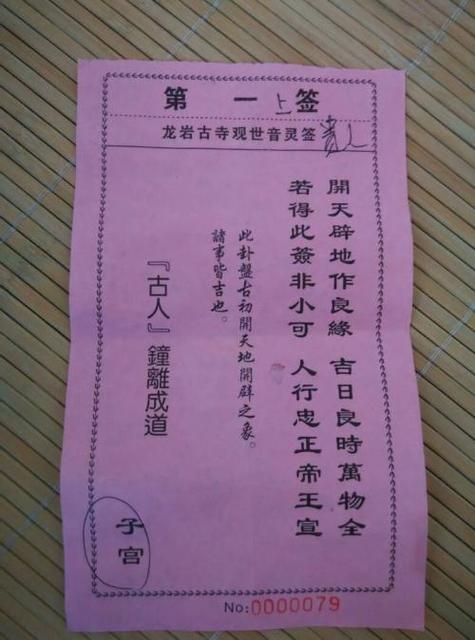 第一上签
龙岩古寺观世音灵签
贵人
開天辟地作良緣 吉日良時萬物全
若得此簽非小可 人行忠正帝王宣
此卦盤古初開天地開辟之象。
諸事皆吉也。
『古人』鐘離成道
子宫
No:0000079